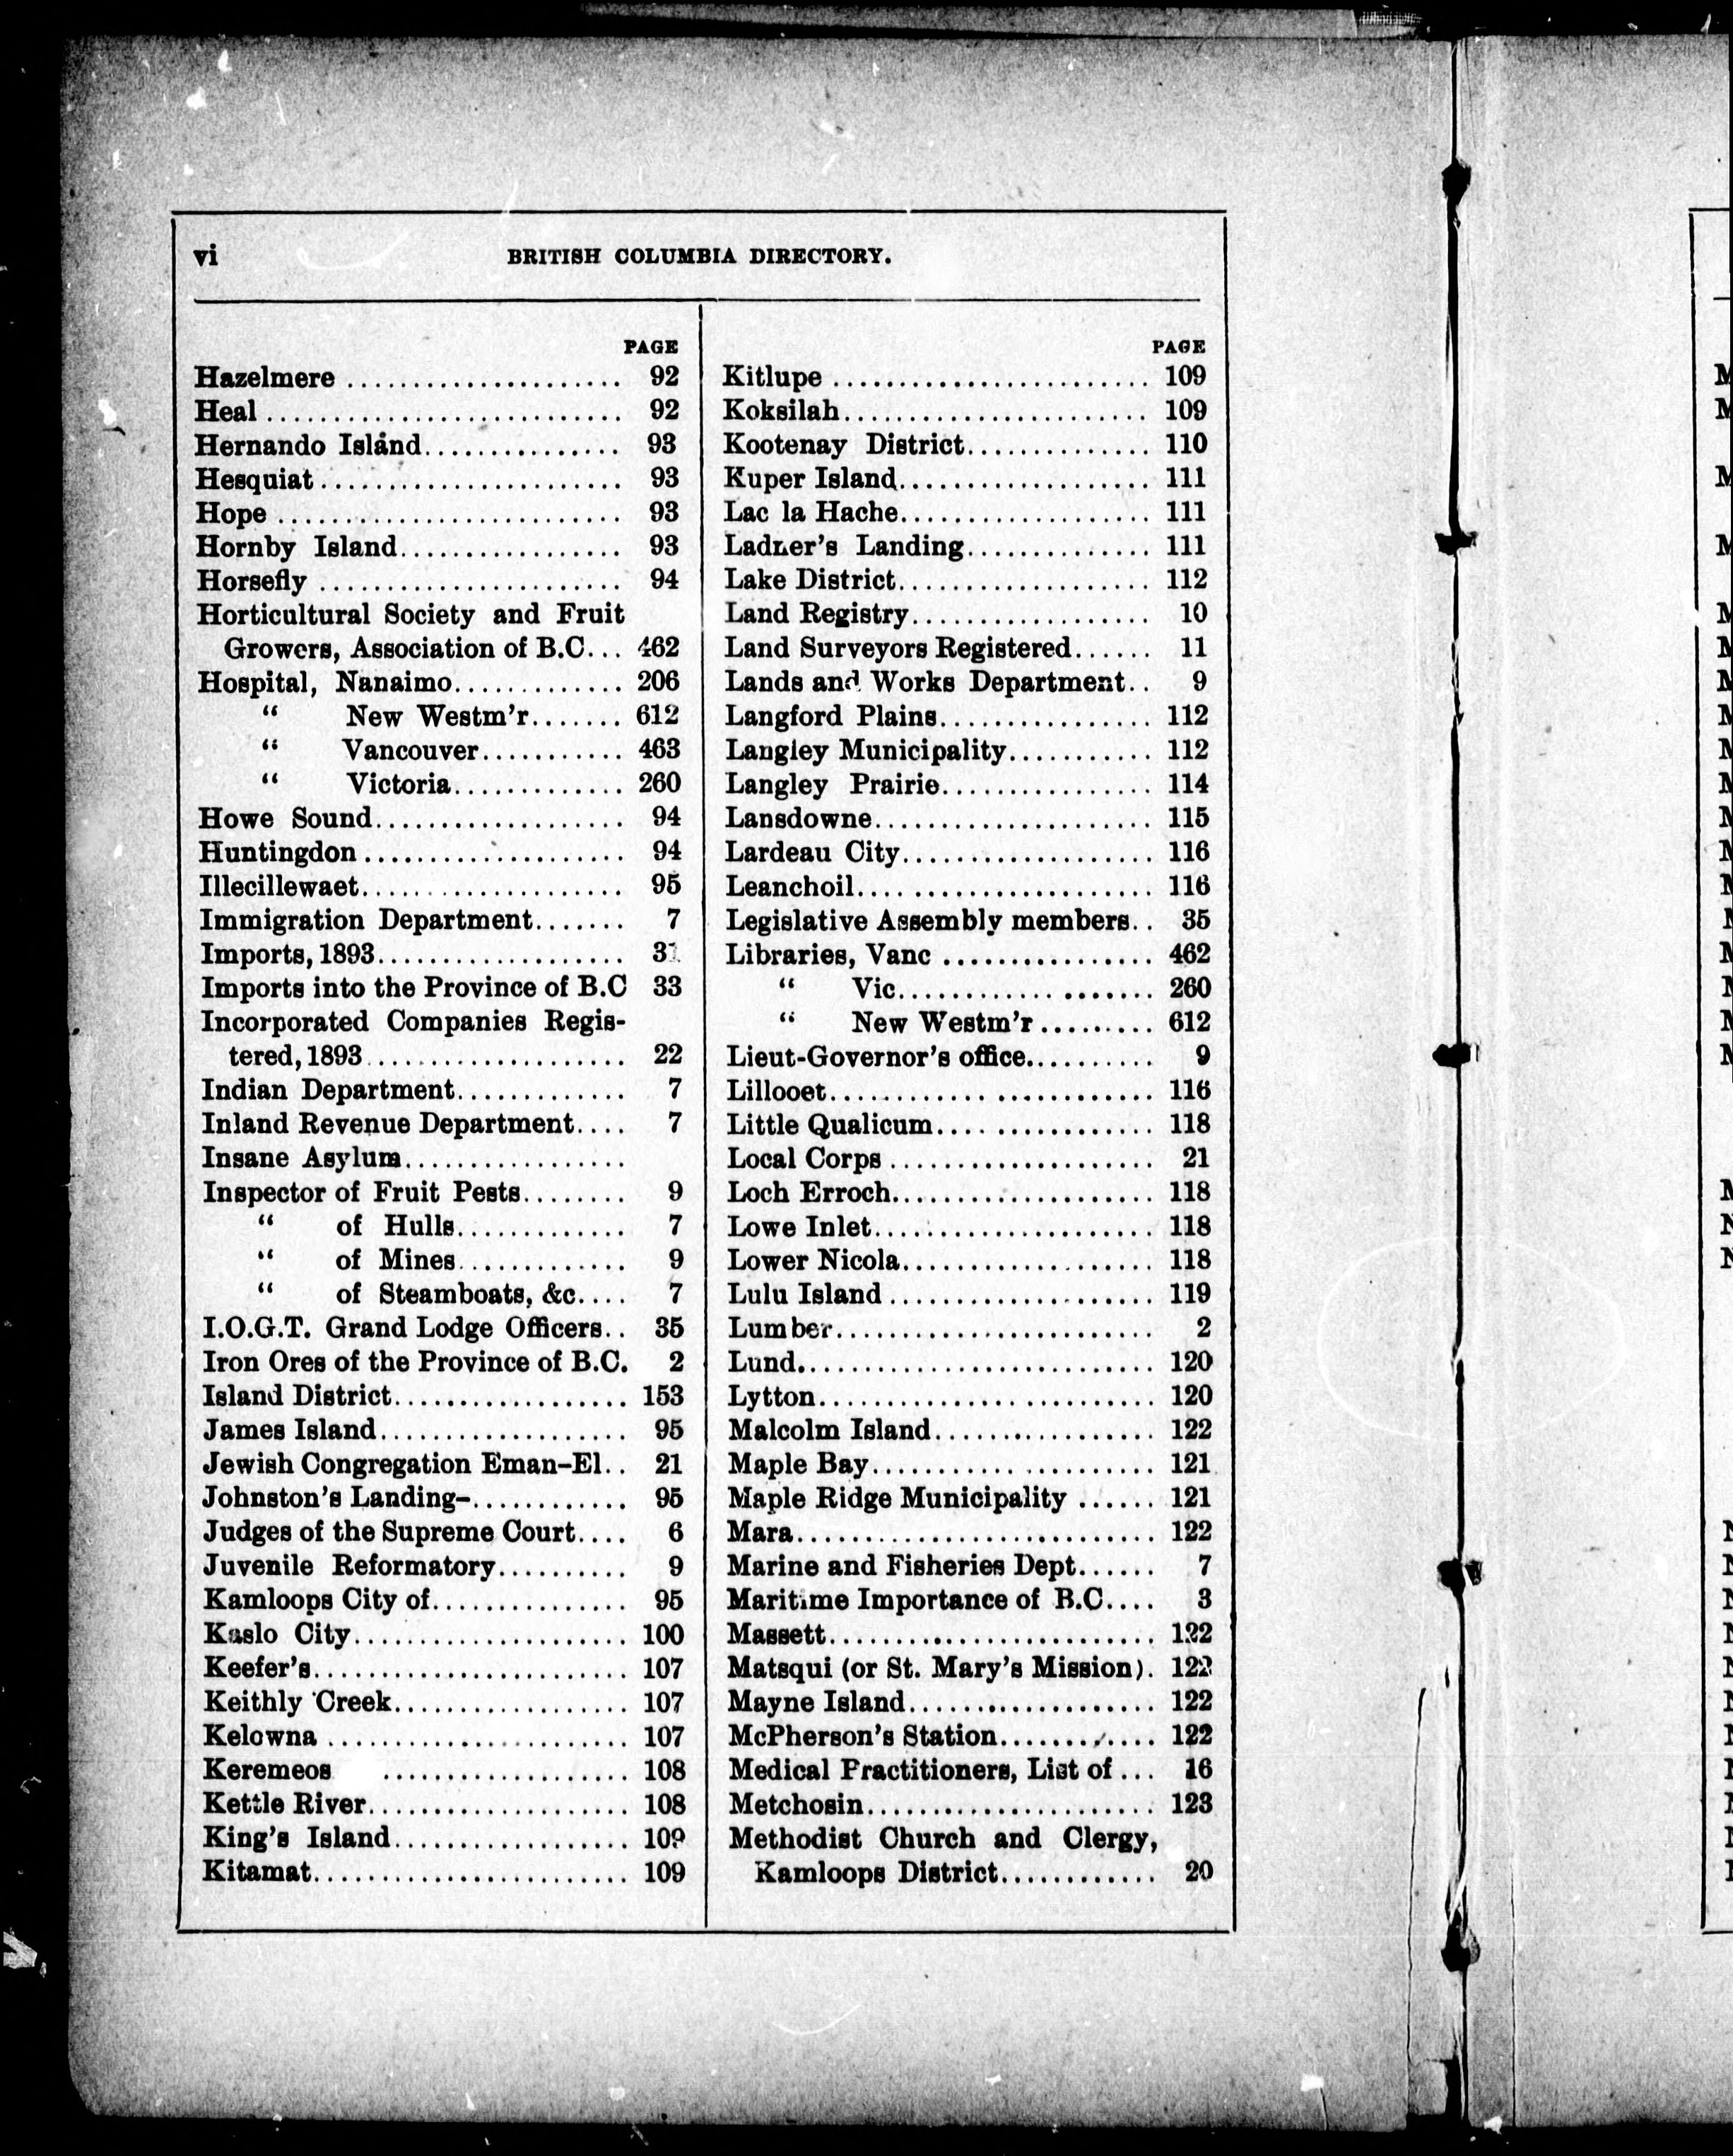 vi BRITISH COLUMBIA DIRECTORY.
PAGE
Hazelmere ..................... 92
Heal ........................... 92
Hernando Island............... 93
Hesquiat ....................... 93
Hope .......................... 93
Hornby Island................. 93
Horsefly ....................... 94
Horticultural Society and Fruit
Growers, Association of B.C... 462
Hospital, Nanaimo............. 206
“ New Westm'r....... 612
“ Vancouver........... 463
“ Victoria............. 260
Howe Sound................... 94
Huntingdon .................... 94
Illecillewaet.................... 95
Immigration Department....... 7
Imports, 1893...................
Imports into the Province of B.C 33
Incorporated Companies Regis-
tered, 1893.................... 22
Indian Department............. 7
Inland Revenue Department.... 7
Insane Asylum.................
Inspector of Fruit Pests........ 9
“ of Hulls............. 7
“ of Mines............. 9
“ of Steamboats, &c.... 7
I.O.G.T. Grand Lodge Officers.. 35
Iron Ores of the Province of B.C. 2
Island District.................. 153
James Island................... 95
Jewish Congregation Eman-El.. 21
Johnston's Landing-............ 95
Judges of the Supreme Court.... 6
Juvenile Reformatory.......... 9
Kamloops City of............... 95
Kaslo City..................... 100
Keefer's........................ 107
Keithly Creek.................. 107
Kelowna ....................... 107
Keremeos ................... 108
Kettle River.................... 108
King's Island.................. 109
Kitamat........................ 109
PAGE
Kitlupe ........................ 109
Koksilah....................... 109
Kootenay District.............. 110
Kuper Island................... 111
Lac la Hache................... 111
Ladner's Landing.............. 111
Lake District................... 112
Land Registry.................. 10
Land Surveyors Registered...... 11
Lands and Works Department.. 9
Langford Plains................ 112
Langley Municipality........... 112
Langley Prairie................ 114
Lansdowne..................... 115
Lardeau City................... 116
Leanchoil...................... 116
Legislative Assembly members.. 35
Libraries, Vanc ................ 462
“ Vic................... 260
“ New Westm'r ......... 612
Lieut-Governor's office.......... 9
Lillooet........................ 116
Little Qualicum................ 118
Local Corps .................... 21
Loch Erroch.................... 118
Lowe Inlet..................... 118
Lower Nicola................... 118
Lulu Island .................... 119
Lumber........................ 2
Lund........................... 120
Lytton......................... 120
Malcolm Island................. 122
Maple Bay..................... 121
Maple Ridge Municipality ...... 121
Mara........................... 122
Marine and Fisheries Dept...... 7
Maritime Importance of B.C.... 3
Massett........................ 122
Matsqui (or St. Mary's Mission). 122
Mayne Island.................. 122
McPherson's Station............ 122
Medical Practitioners, List of ... 16
Metchosin...................... 123
Methodist Church and Clergy,
Kamloops District............ 20